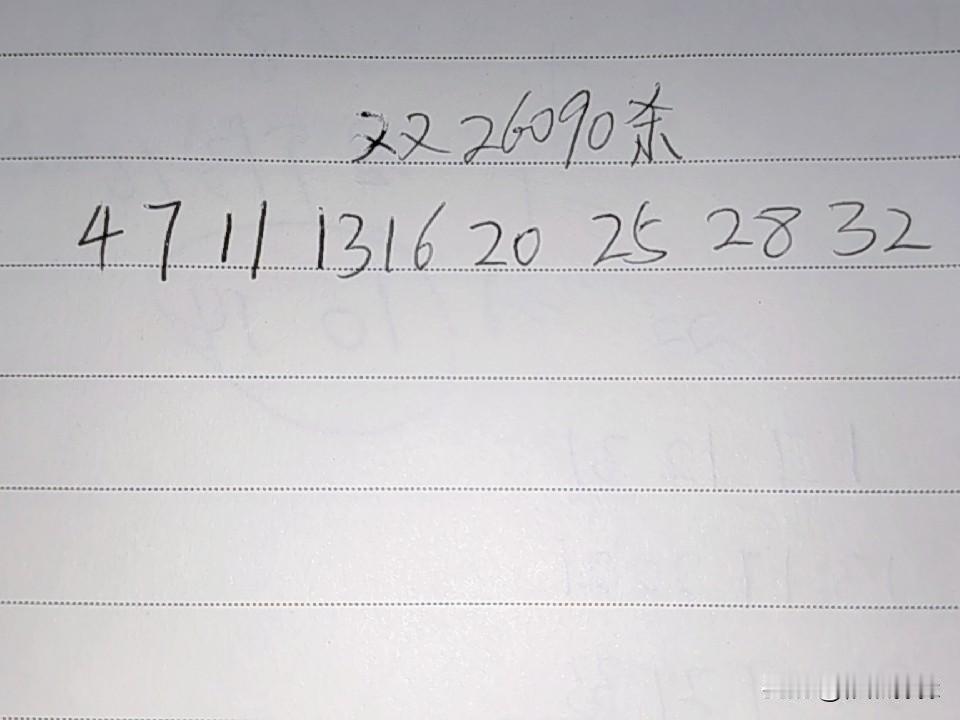 双26090杀
4 7 11 13 16 20 25 28 32